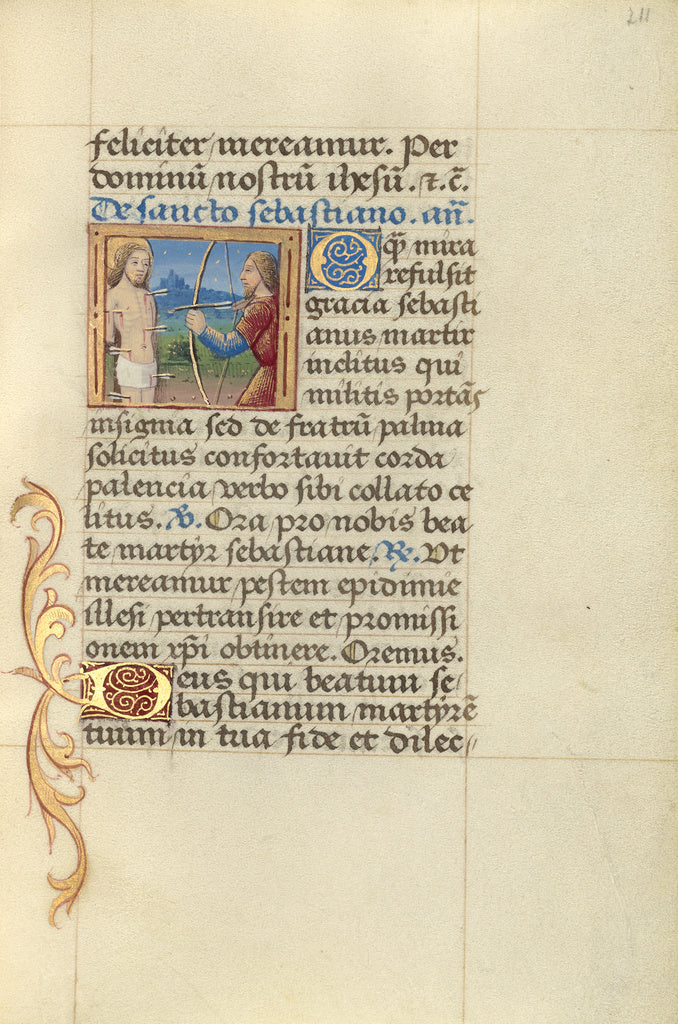 211
feliciter mereamur. Per
dominū nostrū ihesū. ⁊. c̄.
De sancto sebastiano. an̄.
O qͫ mira
refulsit
gracia sebasti
anus martir
inclitus qui
militis portās
insignia sed de fratrū palma
solicitus confortauit corda
palencia verbo sibi collato ce
litus. ℣. Ora pro nobis bea
te martyr sebastiane. ℟. Vt
mereamur pestem epidimie
illesi pertransire et promissi
onem xp̄i obtinere. Oremus.
Deus qui beatum se
bastianum martyrē
tuum in tua fide et dilec